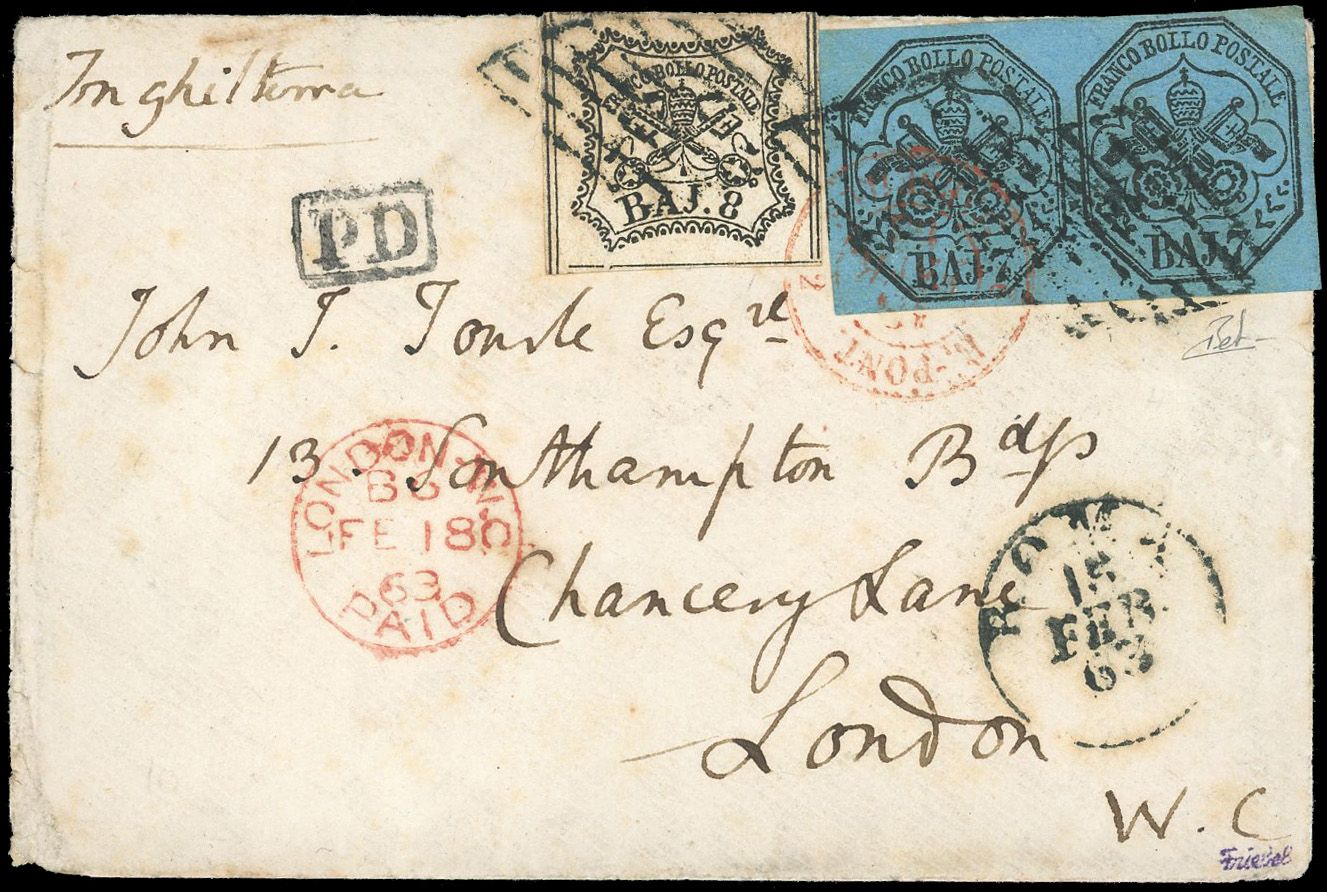 Inghilterra
FRANCO BOLLO POSTALE
BAJ. 8
FRANCO BOLLO POSTALE
BAJ. 7
FRANCO BOLLO POSTALE
BAJ. 7
PD
E.-PONT.
2
John T. Towle Esqre
13. Southampton Bdgs
Chancery Lane
London
W. C
LONDON-W.C
FE 18
63
PAID
ROMA
15
FEB.
63
Friebel